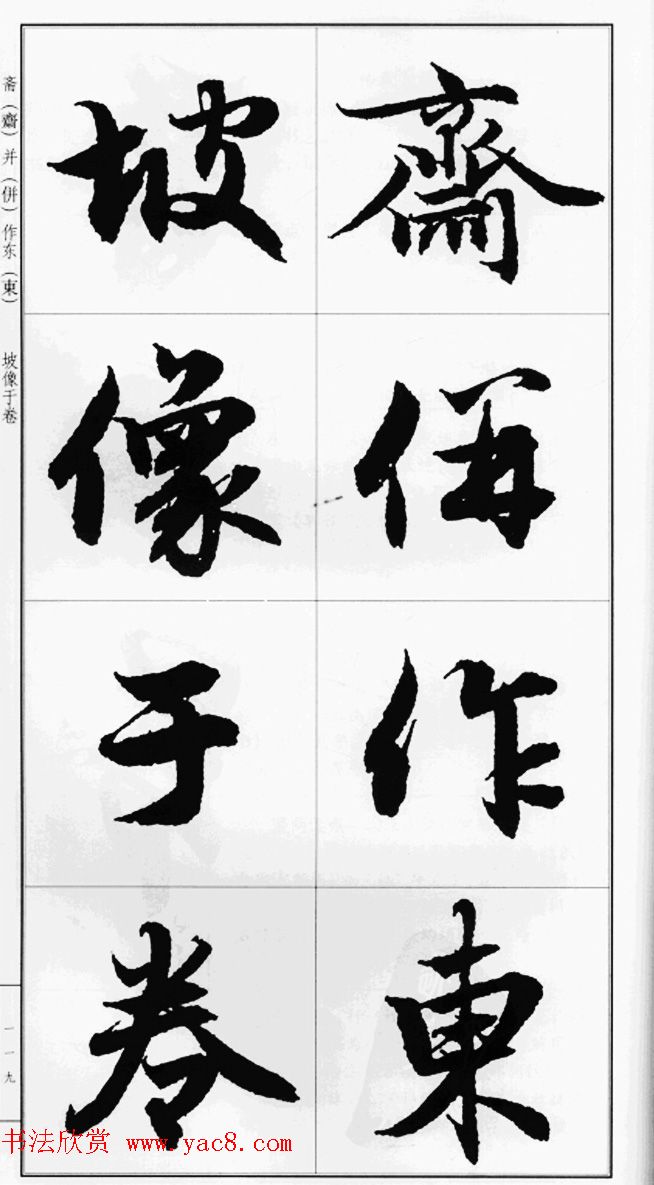 齋併作東
坡像于卷
斋（齋）并（併）作东（東） 坡像于卷
一一九
书法欣赏 www.yac8.com